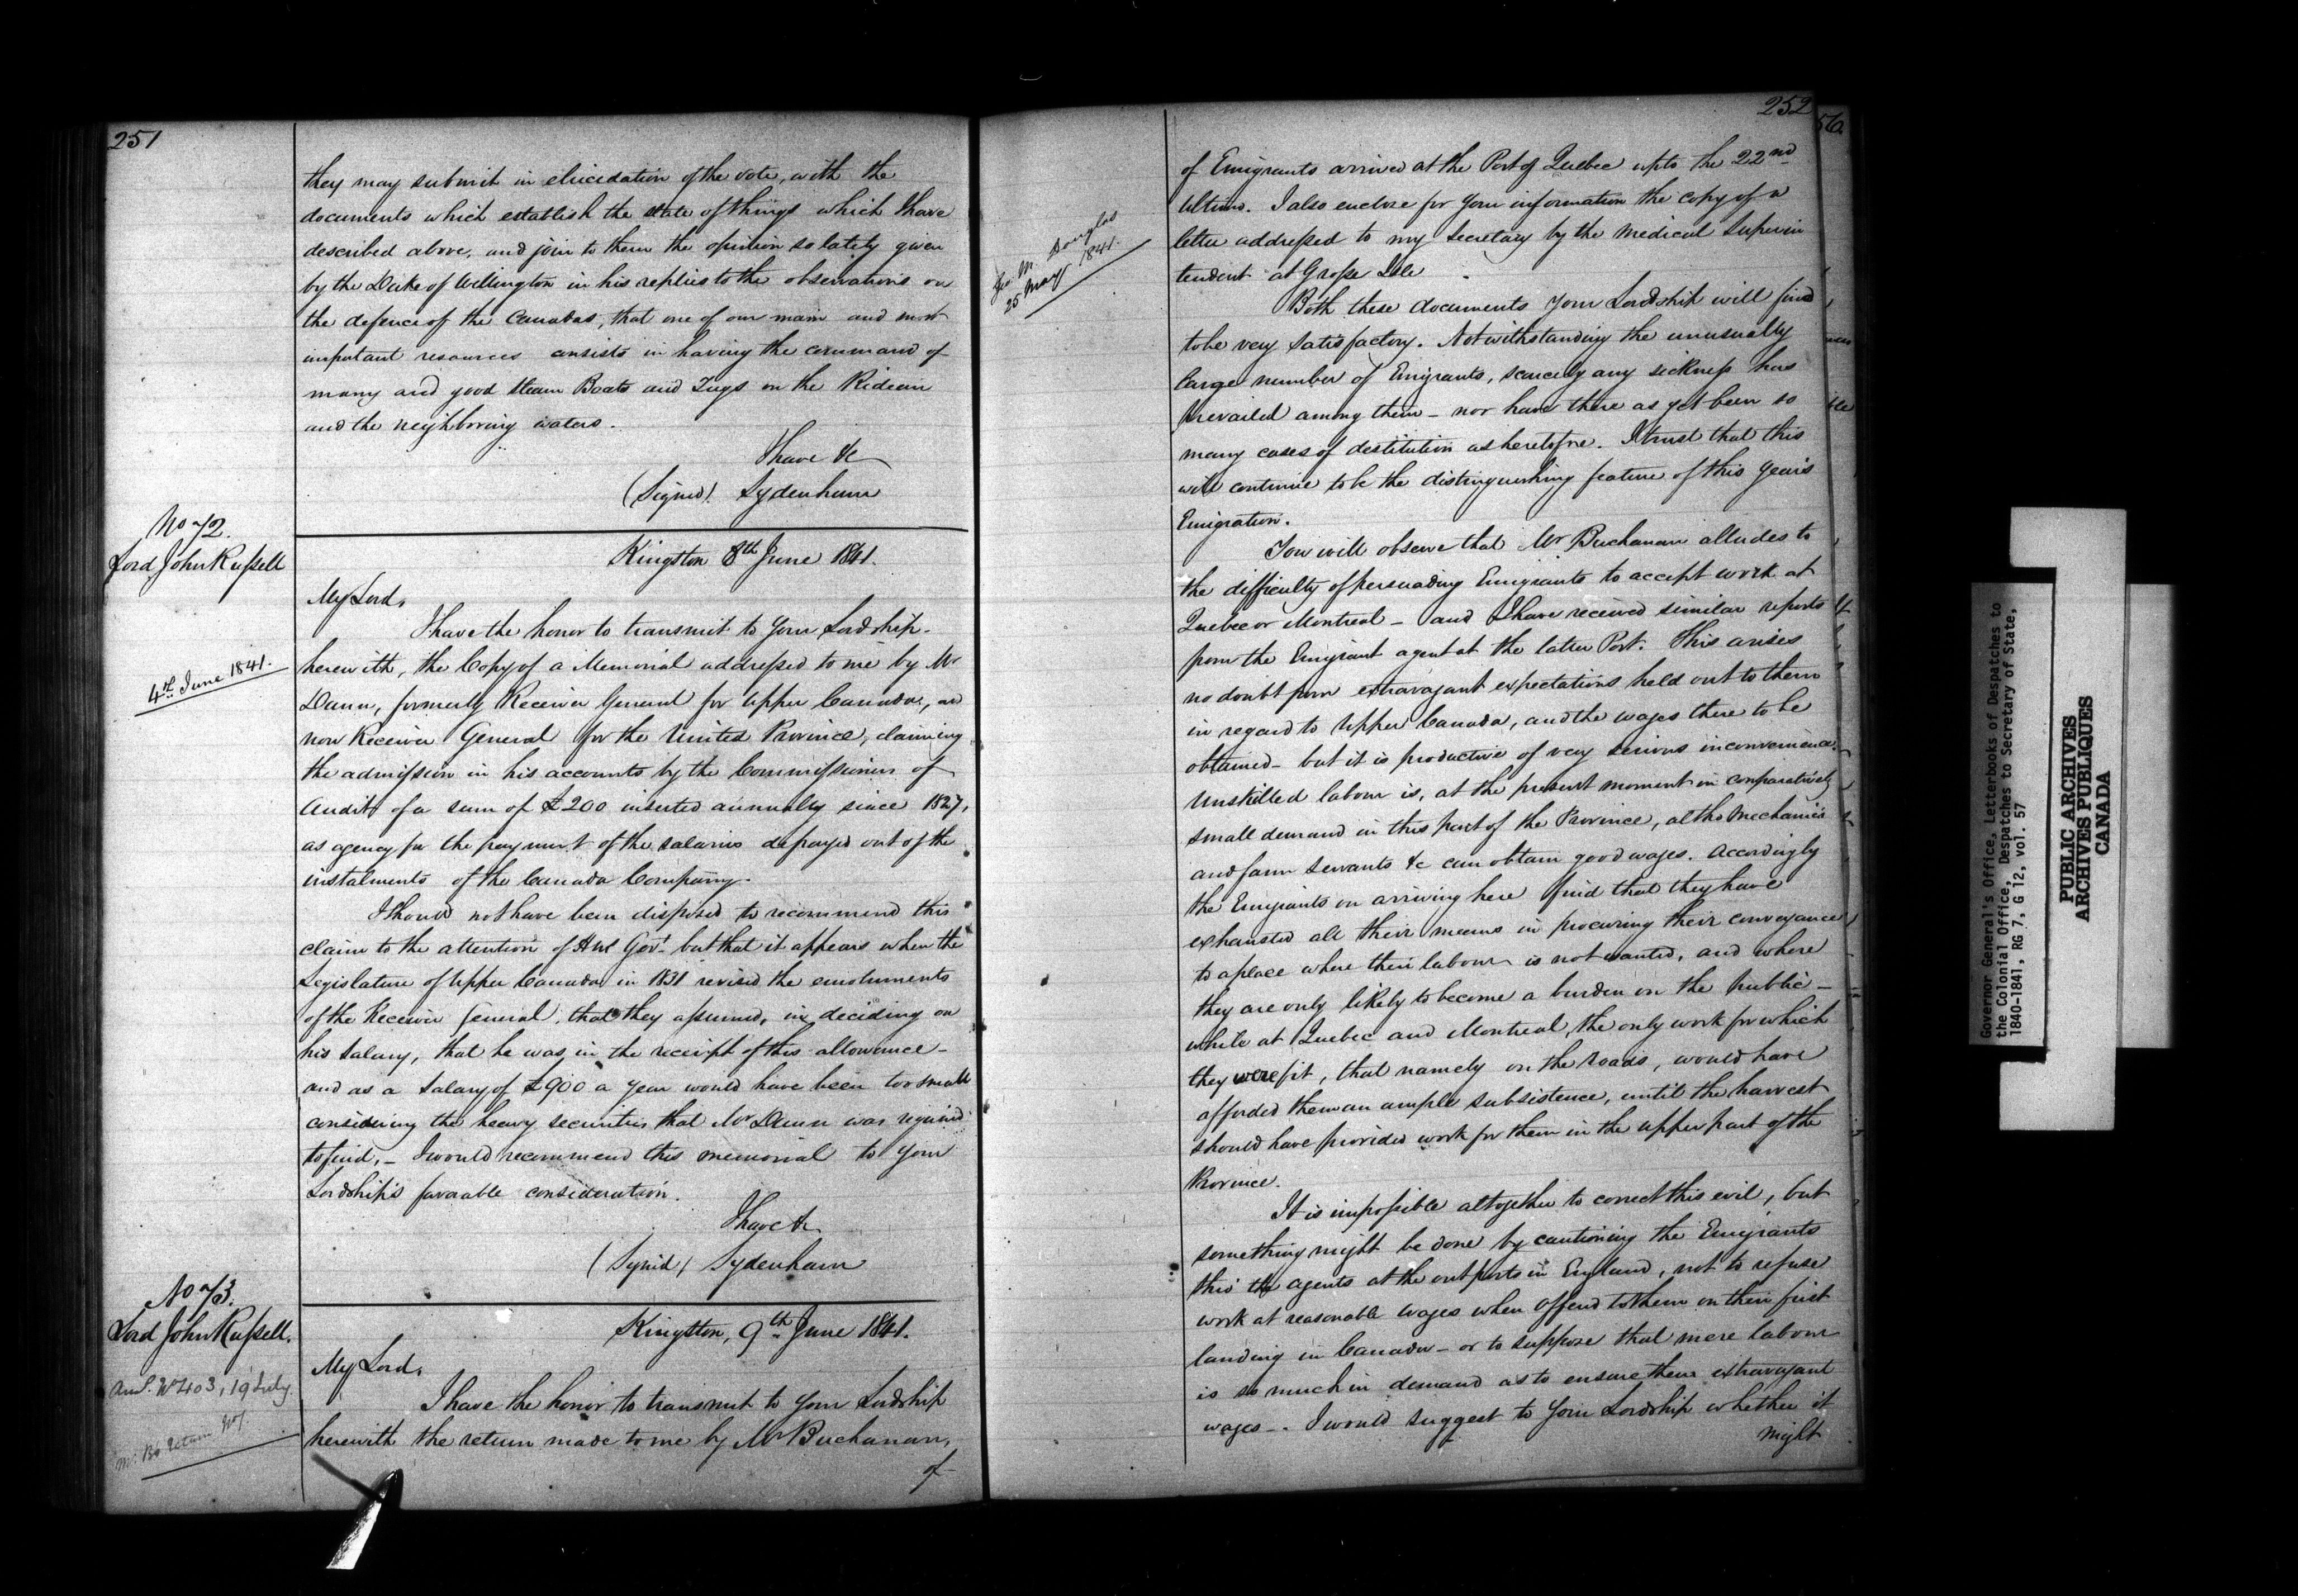 251
they may submit in elucidation of the vote, with the
documents which establish the state of things which I have
described above, and join to them the opinion so lately given
by the Duke of Wellington in his replies to the observations on
the defence of the Canadas, that one of our main and most
important resources consists in having the command of
many and good Steam Boats and Tugs on the Rideau
and the neighboring waters.
I have &c
(Signed) Sydenham
No 72.
Lord John Russell
Kingston 8th June 1841.
My Lord,
I have the honor to transmit to Your Lordship
4th June 1841.
herewith, the Copy of a Memorial addressed to me by Mr
Dunn, formerly Receiver General for Upper Canada, and
now Receiver General for the United Province, claiming
the admission in his accounts by the Commissioners of
Audit of a sum of £200 inserted annually since 1827,
as agency for the payment of the salaries defrayed out of the
instalments of the Canada Company.
I should not have been disposed to recommend this
claim to the attention of H M Govt but that it appears when the
Legislature of Upper Canada in 1831 revised the emoluments
of the Receiver General, that they assumed, in deciding on
his salary, that he was in the receipt of this allowance -
and as a Salary of £900 a Year would have been too small
considering the heavy securities that Mr Dunn was required
to find, - I would recommend this memorial to Your
Lordship's favorable consideration.
I have &c
(Signed) Sydenham
No 73.
Lord John Russell.
Kingston, 9th June 1841.
My Lord,
Ansd. No 403, 19 July.
I have the honor to transmit to Your Lordship
herewith the return made to me by Mr Buchanan,
Mr. Bs return
of
252
of Emigrants arrived at the Port of Quebec upto the 22nd
Ultimo. I also enclose for Your information the copy of a
Geo. M. Douglas
25 May 1841.
letter addressed to my Secretary by the Medical Superin
tendent at Grosse Isle.
Both these documents Your Lordship will find
to be very satisfactory. Notwithstanding the unusually
large number of Emigrants, scarcely any sickness has
prevailed among them - nor have there as yet been so
many cases of destitution as heretofore. I trust that this
will continue to be the distinguishing feature of this Year's
Emigration.
You will observe that Mr Buchanan alludes to
the difficulty of persuading Emigrants to accept work at
Quebec or Montreal - and I have received similar reports
from the Emigrant agent at the latter Port. This arises
no doubt from extravagant expectations held out to them
in regard to Upper Canada, and the wages there to be
obtained - but it is productive of very serious inconvenience.
Unskilled labour is, at the present moment in comparatively
small demand in this part of the Province, altho Mechanics
and farm Servants &c can obtain good wages. Accordingly
the Emigrants on arriving here find that they have
exhausted all their means in procuring their conveyance
to a place where their labour is not wanted, and where
they are only likely to become a burden on the public -
while at Quebec and Montreal, the only work for which
they were fit, that namely on the roads, would have
afforded them an ample subsistence, until the harvest
should have provided work for them in the upper part of the
Province.
It is impossible altogether to correct this evil, but
something might be done by cautioning the Emigrants
thro' the agents at the outports in England, not to refuse
work at reasonable wages when offered to them on their first
landing in Canada - or to suppose that mere labour
is so much in demand as to ensure them extravagant
wages - I would suggest to Your Lordship whether it
might
Governor General's Office, Letterbooks of Despatches to
the Colonial Office, Despatches to Secretary of State,
1840-1841, RG 7, G 12, vol. 57
PUBLIC ARCHIVES
ARCHIVES PUBLIQUES
CANADA